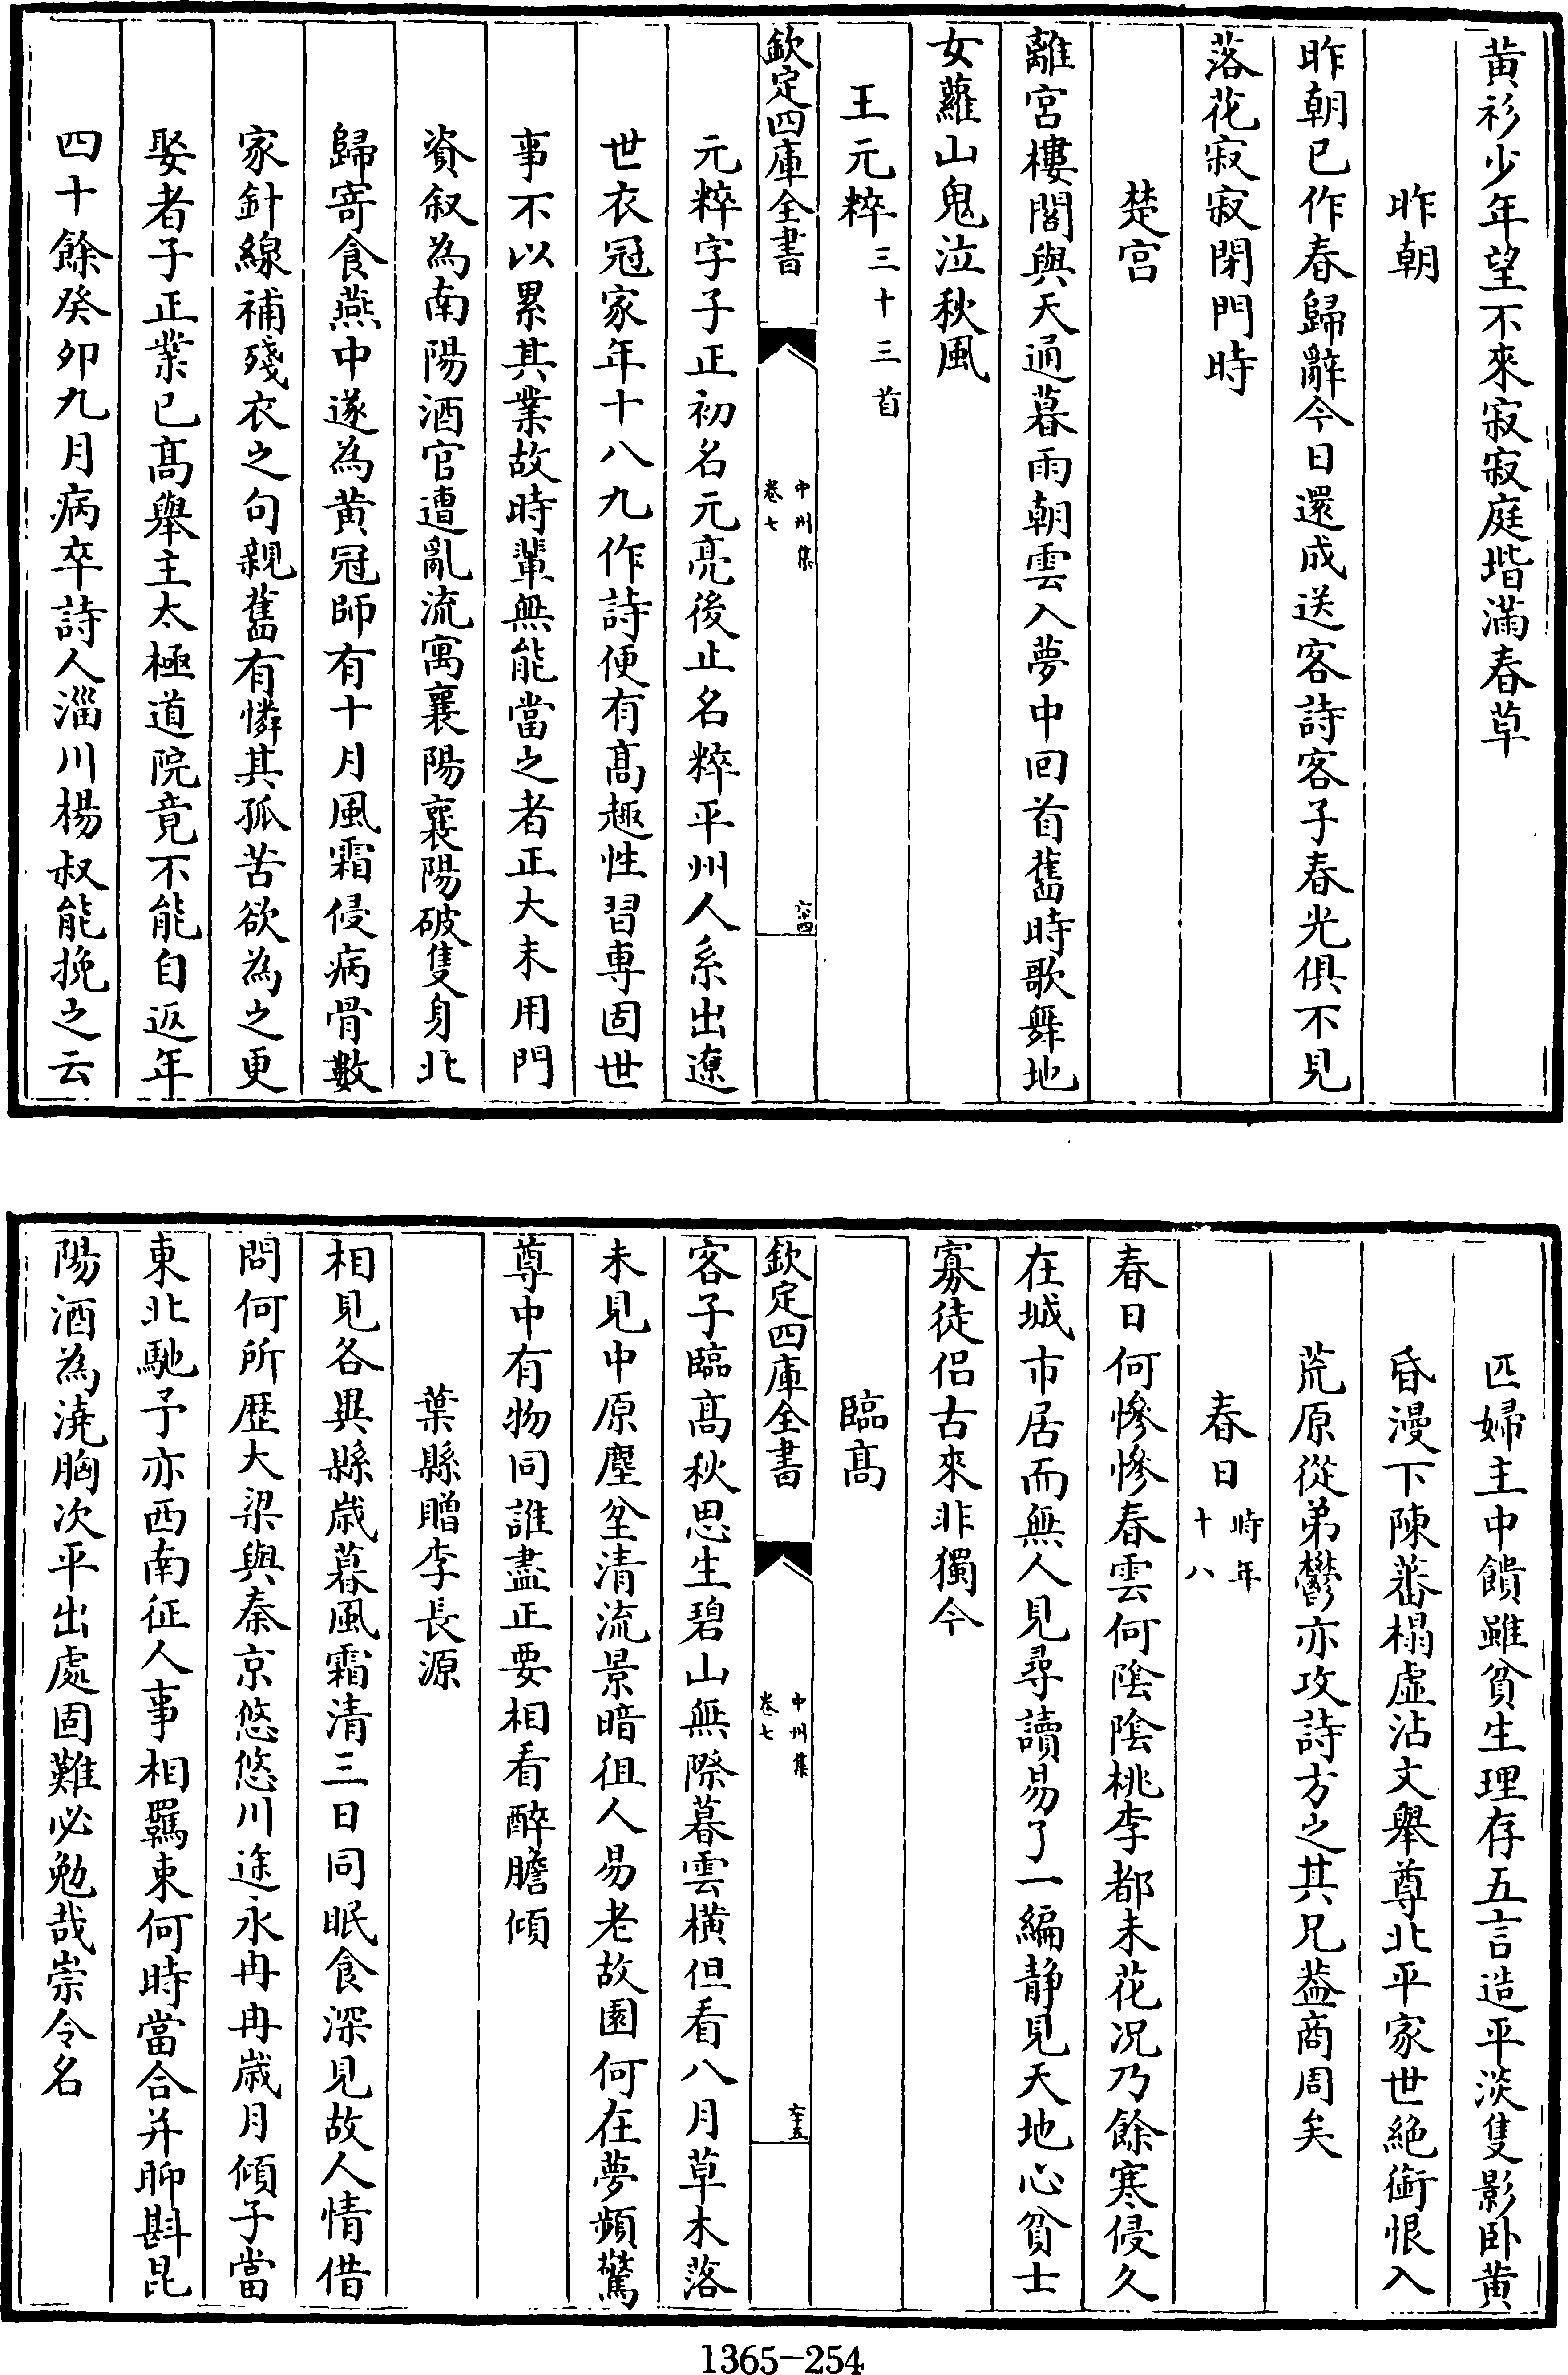 黄衫少年望不來寂寂庭堦滿春草
昨朝
昨朝已作春歸辭今日還成送客詩客子春光俱不見
落花寂寂閉門時
楚宫
離宫樓閣與天通暮雨朝雲入夢中回首舊時歌舞地
女蘿山鬼泣秋風
王元粹三十三首
欽定四庫全書
中州集
卷七
六十四
元粹字子正初名元亮後止名粹平州人系出遼
世衣冠家年十八九作詩便有髙趣性習專固世
事不以累其業故時輩無能當之者正大末用門
資叙為南陽酒官遭亂流寓襄陽襄陽破隻身北
歸寄食燕中遂為黄冠師有十月風霜侵病骨數
家針線補殘衣之句親舊有憐其孤苦欲為之更
娶者子正業已髙舉主太極道院竟不能自返年
四十餘癸卯九月病卒詩人淄川楊叔能挽之云
匹婦主中饋雖貧生理存五言造平淡隻影卧黄
昏漫下陳蕃榻虚沾文舉尊北平家世絶銜恨入
荒原從弟鬱亦攻詩方之其兄葢商周矣
春日時年十八
春日何慘慘春雲何陰陰桃李都未花况乃餘寒侵久
在城市居而無人見尋讀易了一編静見天地心貧士
寡徒侶古來非獨今
臨髙
欽定四庫全書
中州集
卷七
六十五
客子臨髙秋思生碧山無際暮雲横但看八月草木落
未見中原塵坌清流景暗徂人易老故園何在夢頻驚
尊中有物同誰盡正要相看醉膽傾
葉縣贈李長源
相見各異縣歳暮風霜清三日同眠食深見故人情借
問何所歴大梁與秦京悠悠川途永冉冉歳月傾子當
東北馳予亦西南征人事相羈束何時當合并聊斟昆
陽酒為澆胸次平出處固難必勉哉崇令名
1365-254